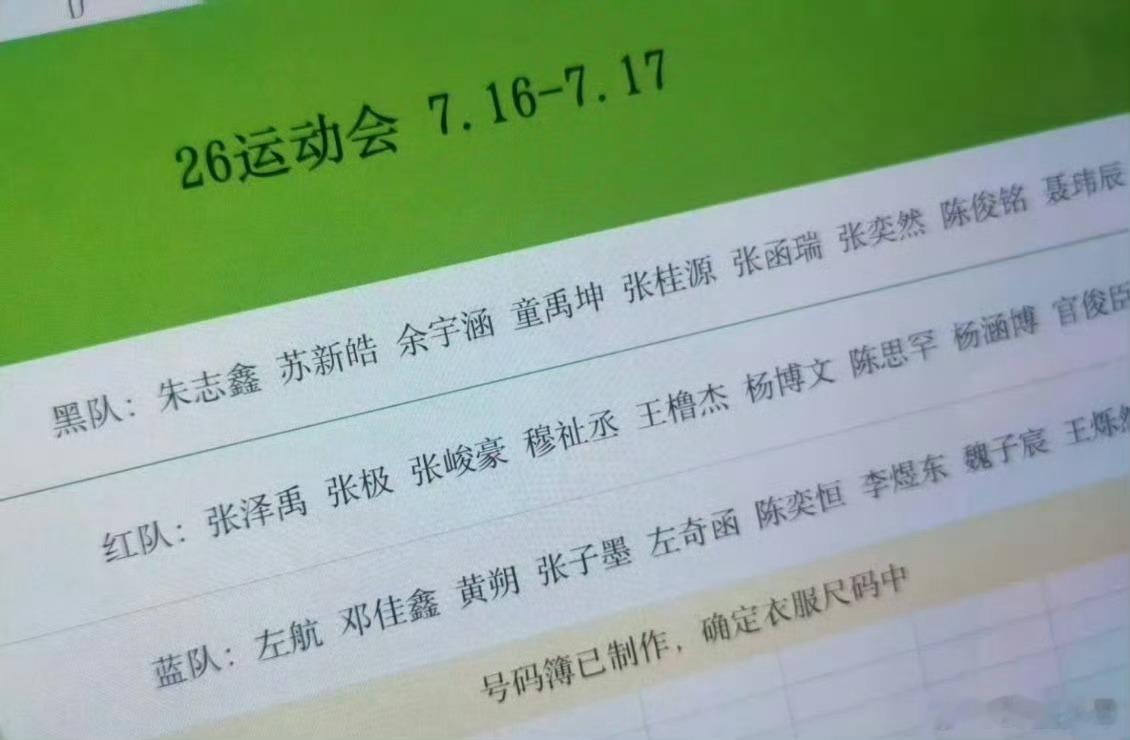 26运动会 7.16-7.17
黑队：朱志鑫 苏新皓 余宇涵 童禹坤 张桂源 张函瑞 张奕然 陈俊铭 聂玮辰
红队：张泽禹 张极 张峻豪 穆祉丞 王橹杰 杨博文 陈思罕 杨涵博 官俊臣
蓝队：左航 邓佳鑫 黄朔 张子墨 左奇函 陈奕恒 李煜东 魏子宸 王烁然
号码簿已制作，确定衣服尺码中